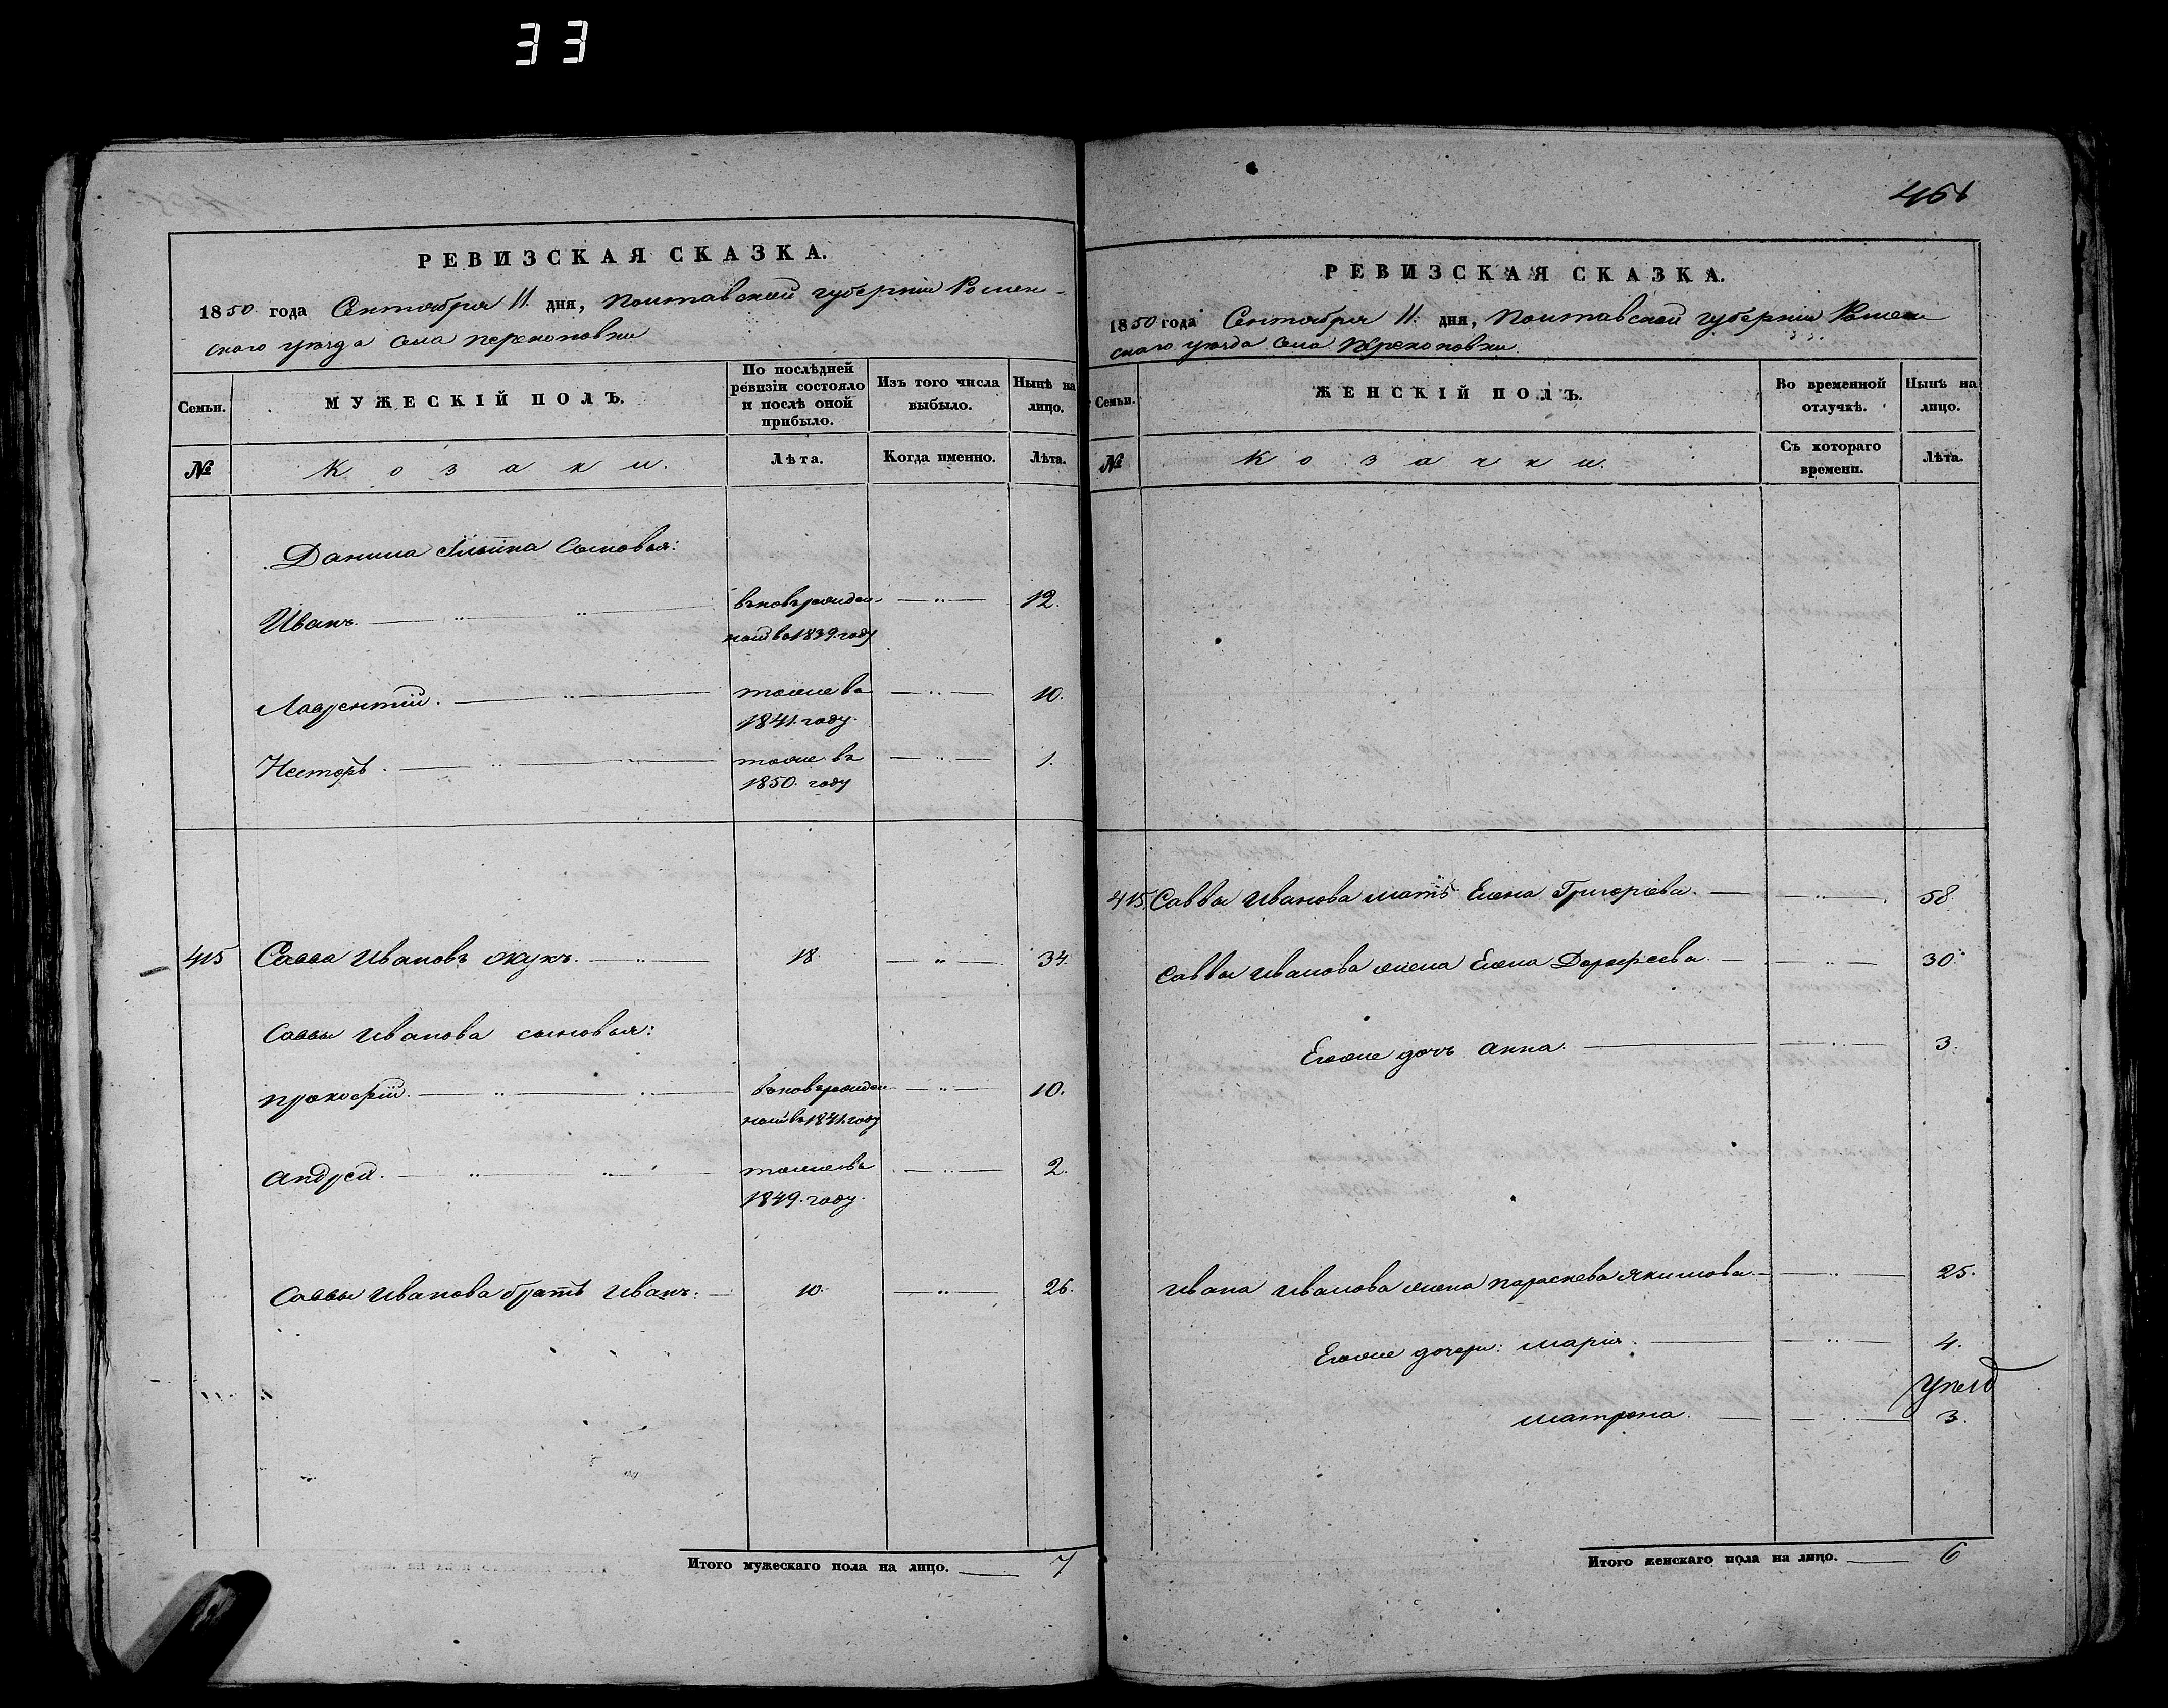 33
461
РЕВИЗСКАЯ СКАЗКА.
1850 года Сентября 11. дня, Полтавской губерніи Ромен-
скаго уѣзда села Перекоповки
Семьи.
МУЖЕСКІЙ ПОЛЪ.
По послѣдней ревизіи состояло и послѣ оной прибыло.
Изъ того числа выбыло.
Нынѣ на лицо.
№
Козаки.
Лѣта.
Когда именно.
Лѣта.
Данила сыновья:
Иванъ. вновьрожден-
ной въ 1839. году 12.
Лаврентій. тоже въ 10.
1841. году.
Несторъ. тоже въ 1.
1850. году
415 Савва Ивановъ Жукъ. 18. 34.
Саввы Иванова сыновья:
Прокофій. вновьрожден 10.
ной въ 1841. году
Андрей. тоже въ 2.
1849. году.
Саввы Иванова братъ Иванъ. 10. 26.
Итого мужескаго пола на лицо. 7
РЕВИЗСКАЯ СКАЗКА.
1850 года Сентября 11. дня, Полтавской губерніи Ромен
скаго уѣзда села Перекоповки.
Семьи.
ЖЕНСКІЙ ПОЛЪ.
Во временной отлучкѣ.
Нынѣ на лицо.
№
Козачки.
Съ котораго времени.
Лѣта.
415. Саввы Иванова мать Елена Григорьева. 58.
Саввы Иванова жена Елена Дорофеева. 30.
Егоже дочь Анна. 3.
Ивана Иванова жена Параскева Якимова. 25.
Егоже дочери: Марія. 4.
Матрона. 3.
Итого женскаго пола на лицо. 6